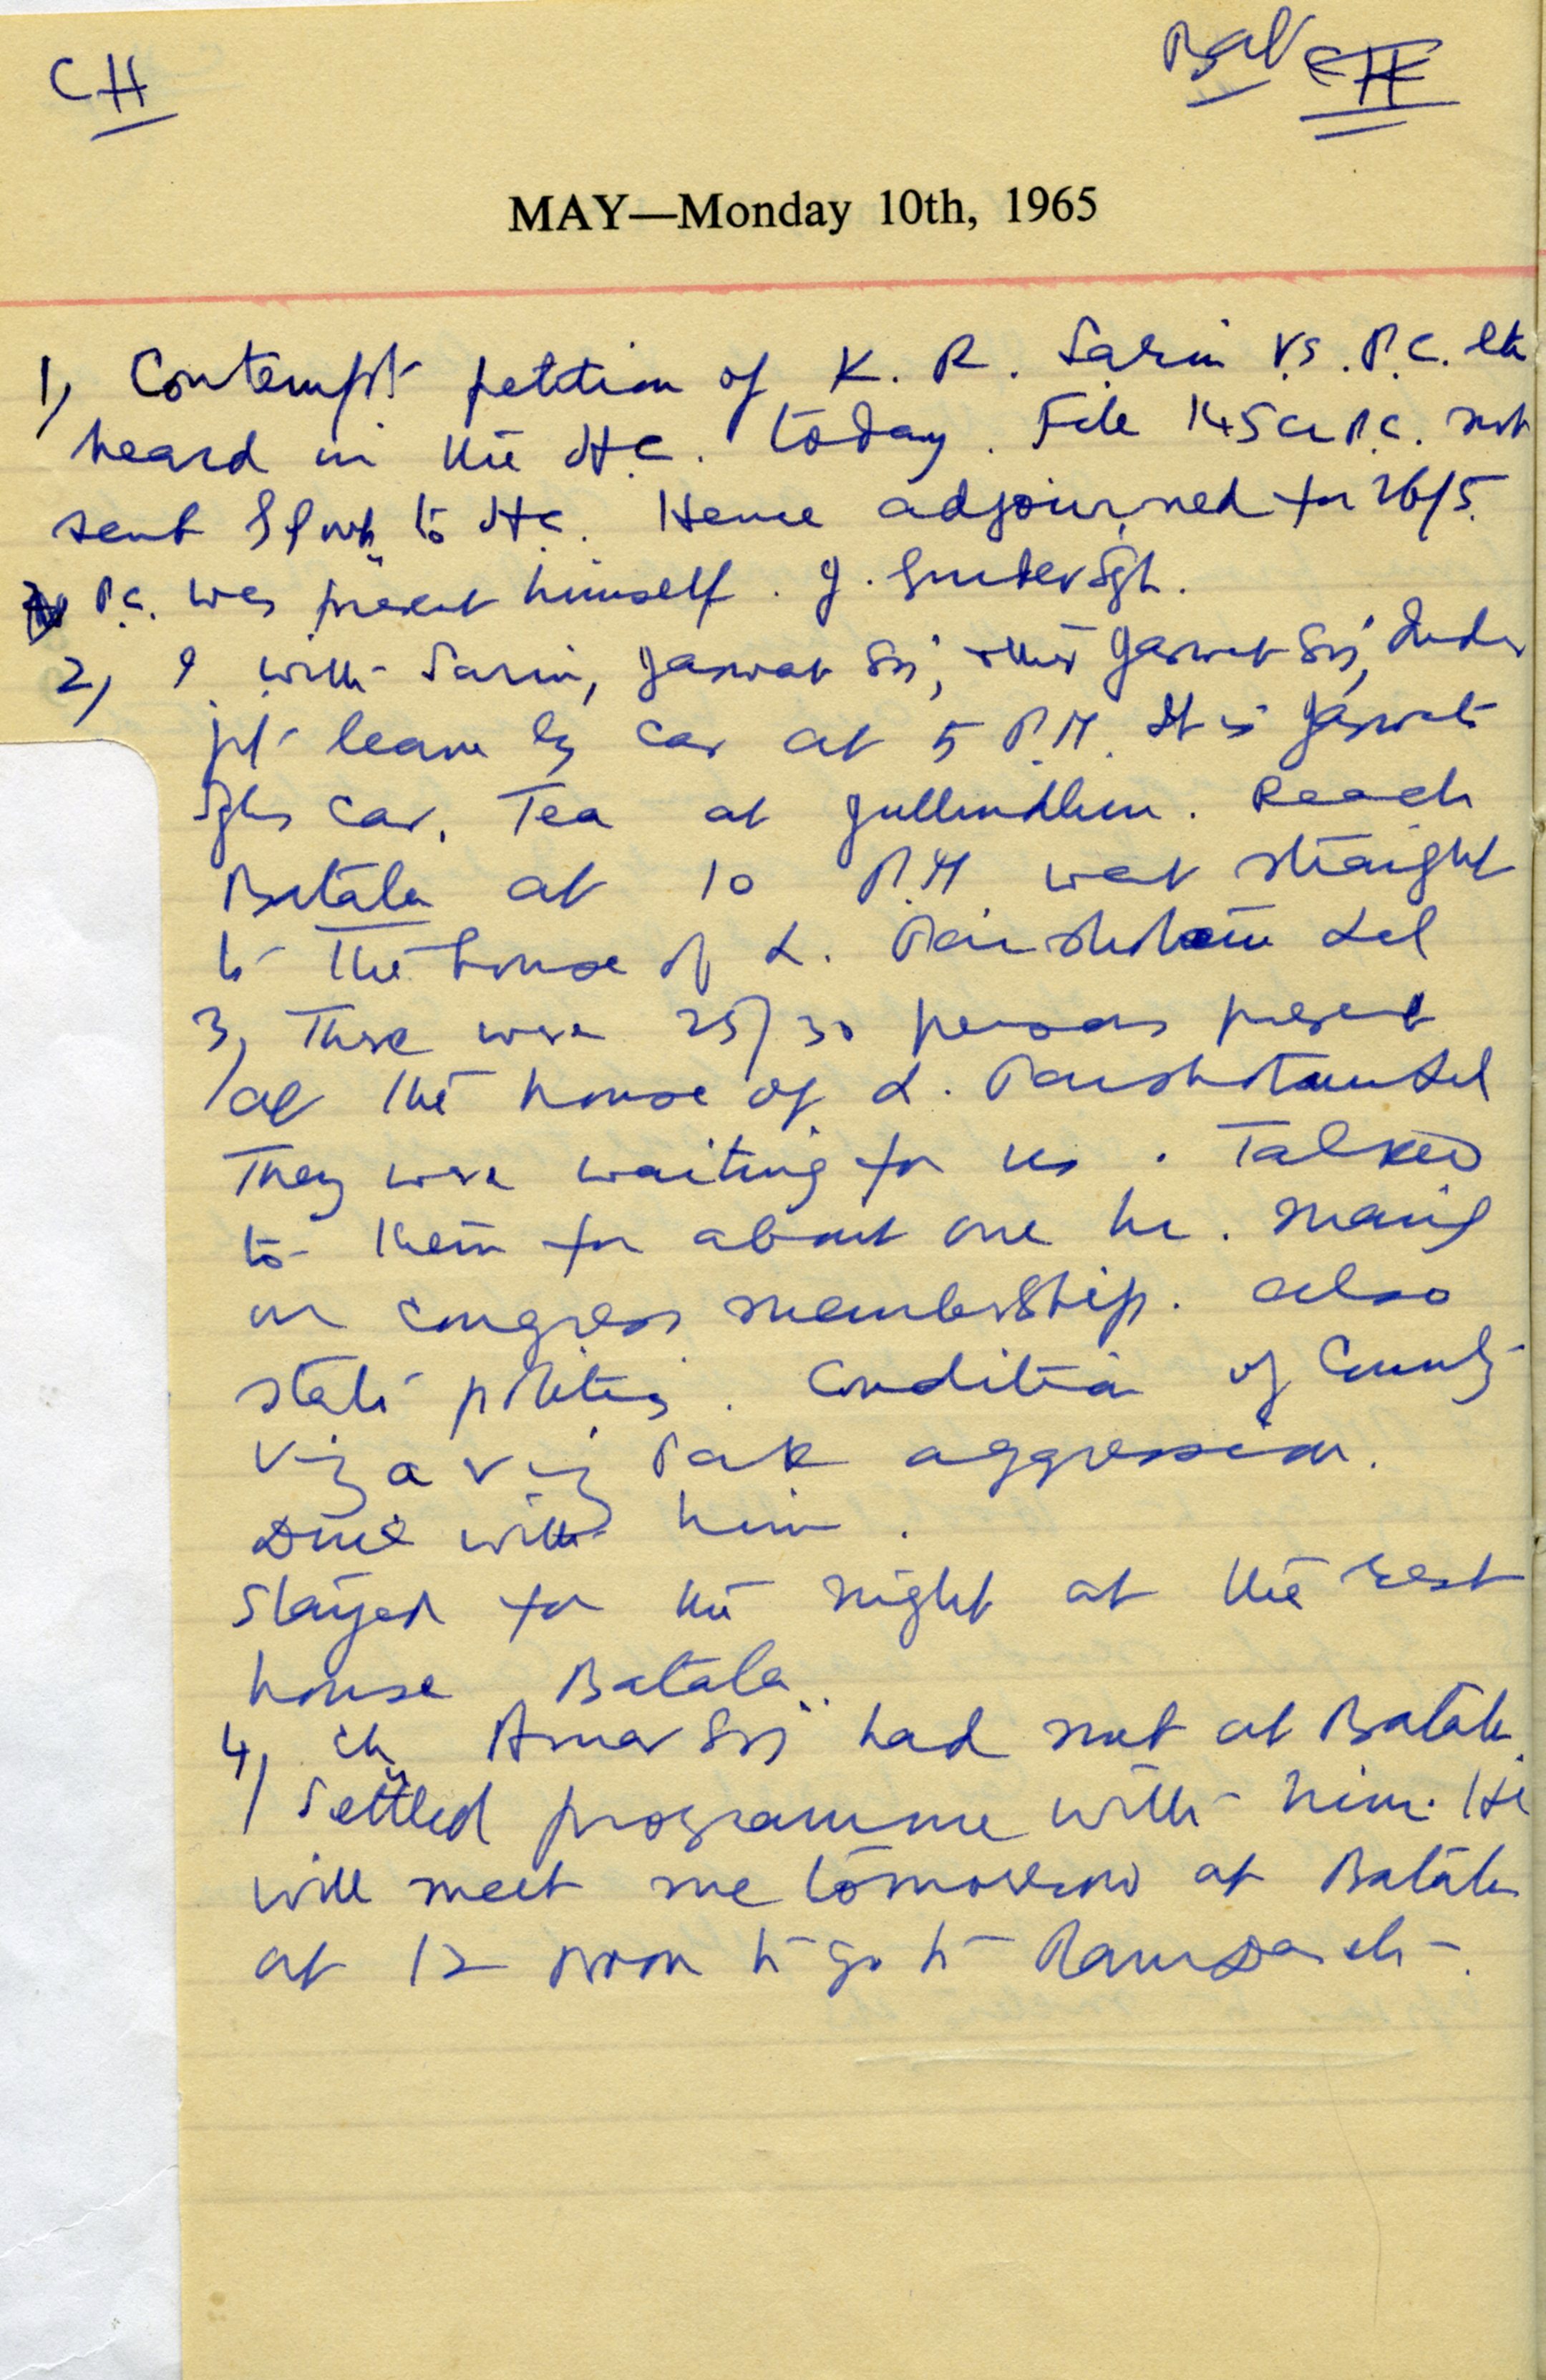 CH
Bat CH
MAY—Monday 10th, 1965
1, Contempt petition of K. R. Sarin V.S. P.C. etc
heard in the H.C. today. File 145 Cr P.C. not
sent to H.C. Hence adjourned for 26/5.
P.C. was present himself. J. Gurdev Sgh.
2, I with Sarin, Jaswat Sgh, other Jaswat Sgh, Inder
jit leave by car at 5 P.M. It is Jaswat
Sghs car. Tea at Jullundhur. Reach
Batala at 10 P.M went straight
to the house of L. Parshotam Lal
3, There were 25/30 persons present
at the house of L. Parshotam Lal
They were waiting for us. Talked
to them for about one hr. mainly
on congress membership. also
state politics. Condition of County
viz a viz Pak aggression.
Dine with him.
Stayed for the night at the rest
house Batala.
4, Ch. Amar Sgh had met at Batala.
Settled programme with him. He
will meet me tomorrow at Batala
at 12 noon to go to Ramdas etc.